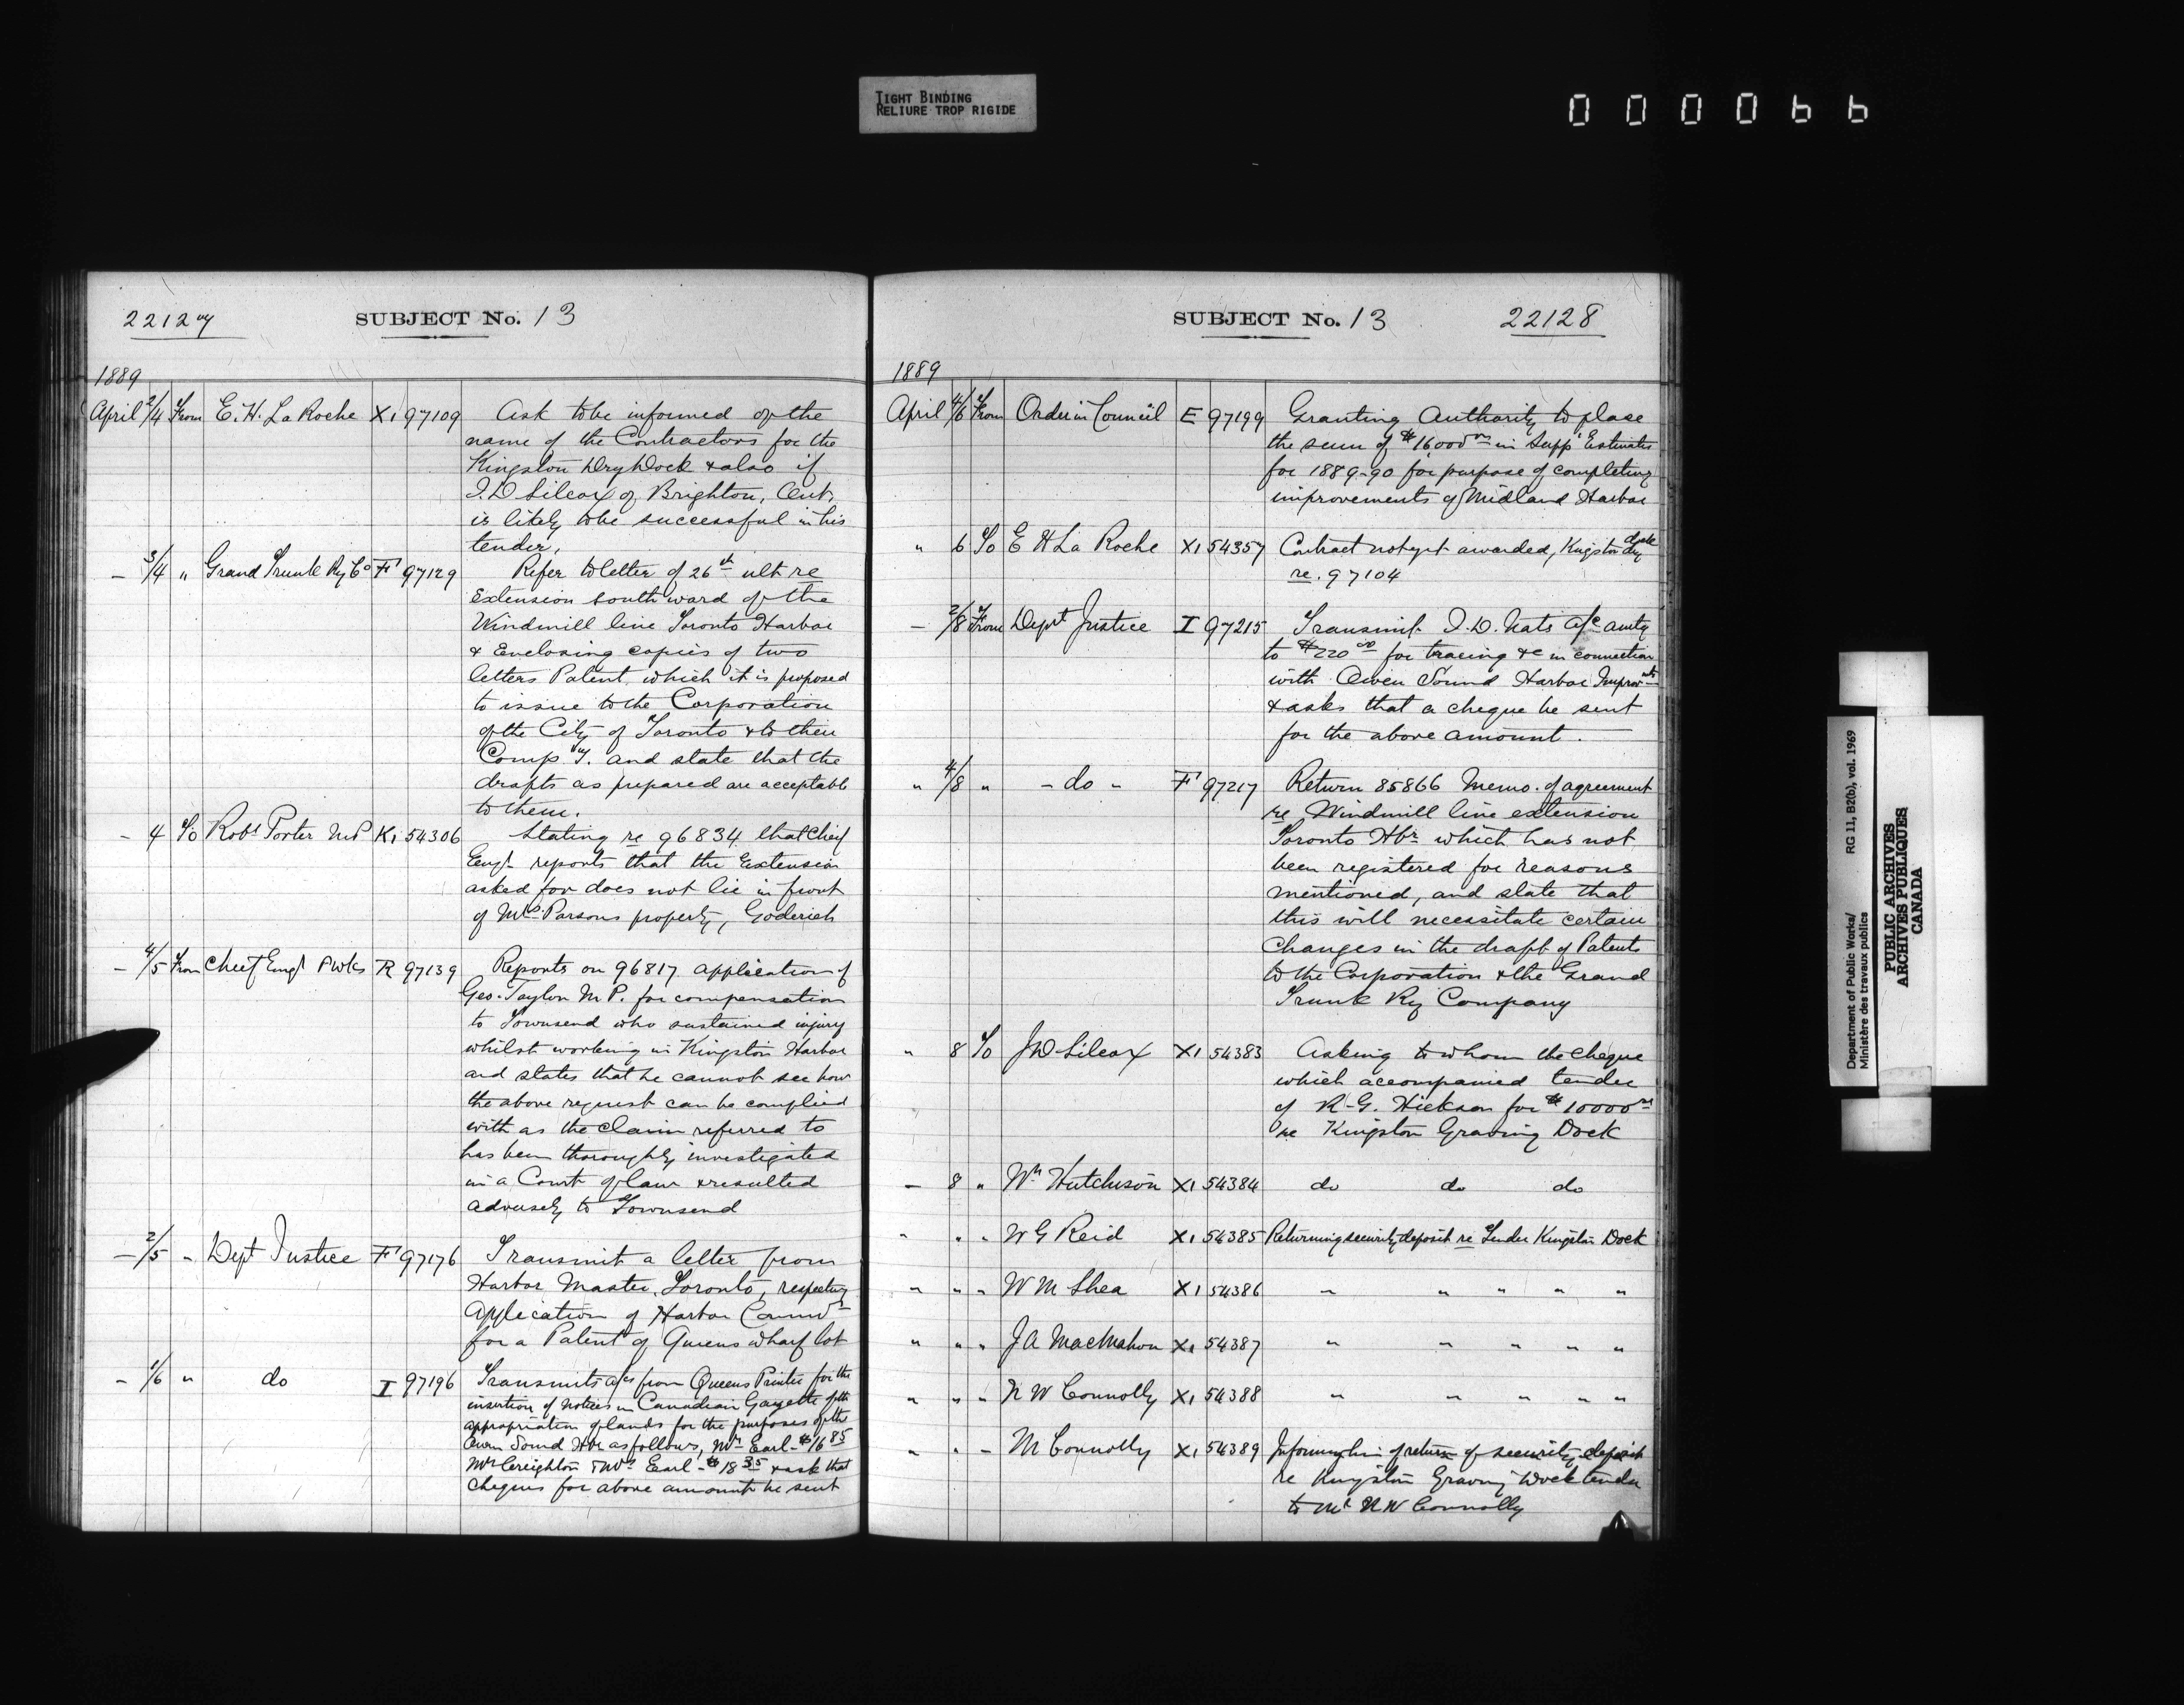 TIGHT BINDING
RELIURE TROP RIGIDE
000066
22127
SUBJECT No. 13
1889
April 2/4 From E. H. La Roche X1 97109 Ask to be informed of the
name of the Contractors for the
Kingston Dry Dock & also if
J. D Silcox of Brighton, Ont.
is likely to be successful in his
tender.
— 3/4 " Grand Trunk Ry Co F 97129 Refer to letter of 26th ult re
Extension southward of the
Windmill line Toronto Harbor
& Enclosing copies of two
letters Patent which it is proposed
to issue to the Corporation
of the City of Toronto & to their
Compy. and state that the
drafts as prepared are acceptable
to them.
- 4 To Robt Porter MP K1 54306 Stating re 96834 that Chief
Engr reports that the Extension
asked for does not lie in front
of Mrs Parsons property, Goderich
- 4/5 From Chief Engr P Wks R 97139 Reports on 96817 application of
Geo. Taylor M P. for compensation
to Townsend who sustained injury
whilst working in Kingston Harbor
and states that he cannot see how
the above request can be complied
with as the claim referred to
has been thoroughly investigated
in a Court of law & resulted
adversely to Townsend
— 2/5 " Dept Justice F 97176 Transmit a letter from
Harbor Master, Toronto, respecting
Application of Harbor Commrs
for a Patent of Queens wharf lot
- 1/6 " do I 97196 Transmits a/cs from Queens Printer for the
insertion of notices in Canadian Gazette of the
appropriation of lands for the purposes of the
Owen Sound Hbr as follows, Mr Earl - $16 85
Mr Creighton & Mrs Earl - $18 35 & ask that
cheques for above amount be sent
SUBJECT No. 13
22128
1889
April 4/6 From Order in Council E 97199 Granting Authority to place
the sum of $16000 00 in Supp Estimates
for 1889-90 for purpose of completing
improvements of Midland Harbor
" 6 To E H La Roche X1 54357 Contract not yet awarded, Kingston dry dock
re. 97104
— 2/8 From Dept Justice I 97215 Transmit J. D. a/c amtg
to $220 00 for tracing &c in connection
with Owen Sound Harbor Improvmts
& asks that a cheque be sent
for the above amount.
" 4/8 " - do - F 97217 Return 85866 Memo. of agreement
re Windmill line extension
Toronto Hbr which has not
been registered for reasons
mentioned, and state that
this will necessitate certain
Changes in the draft of Patents
to the Corporation & the Grand
Trunk Ry Company
" 8 To J D Silcox X1 54383 Asking to whom the cheque
which accompanied tender
of R. G. Hickson for $10000 00
re Kingston Graving Dock
— 8 " Wm Hutchison X1 54384 do do do
" " " W G Reid X1 54385 Returning security deposit re Tender Kingston Dock
" " " W M Shea X1 54386 " " " " "
" " " J A MacMahon X1 54387 " " " " "
" " " N W Connolly X1 54388 " " " " "
" " " M Connolly X1 54389 Informing him of return of security deposit
re Kingston Graving Dock tender
to Mr N W Connolly
Department of Public Works/ RG 11, B2(b), vol. 1969
Ministère des travaux publics
PUBLIC ARCHIVES
ARCHIVES PUBLIQUES
CANADA